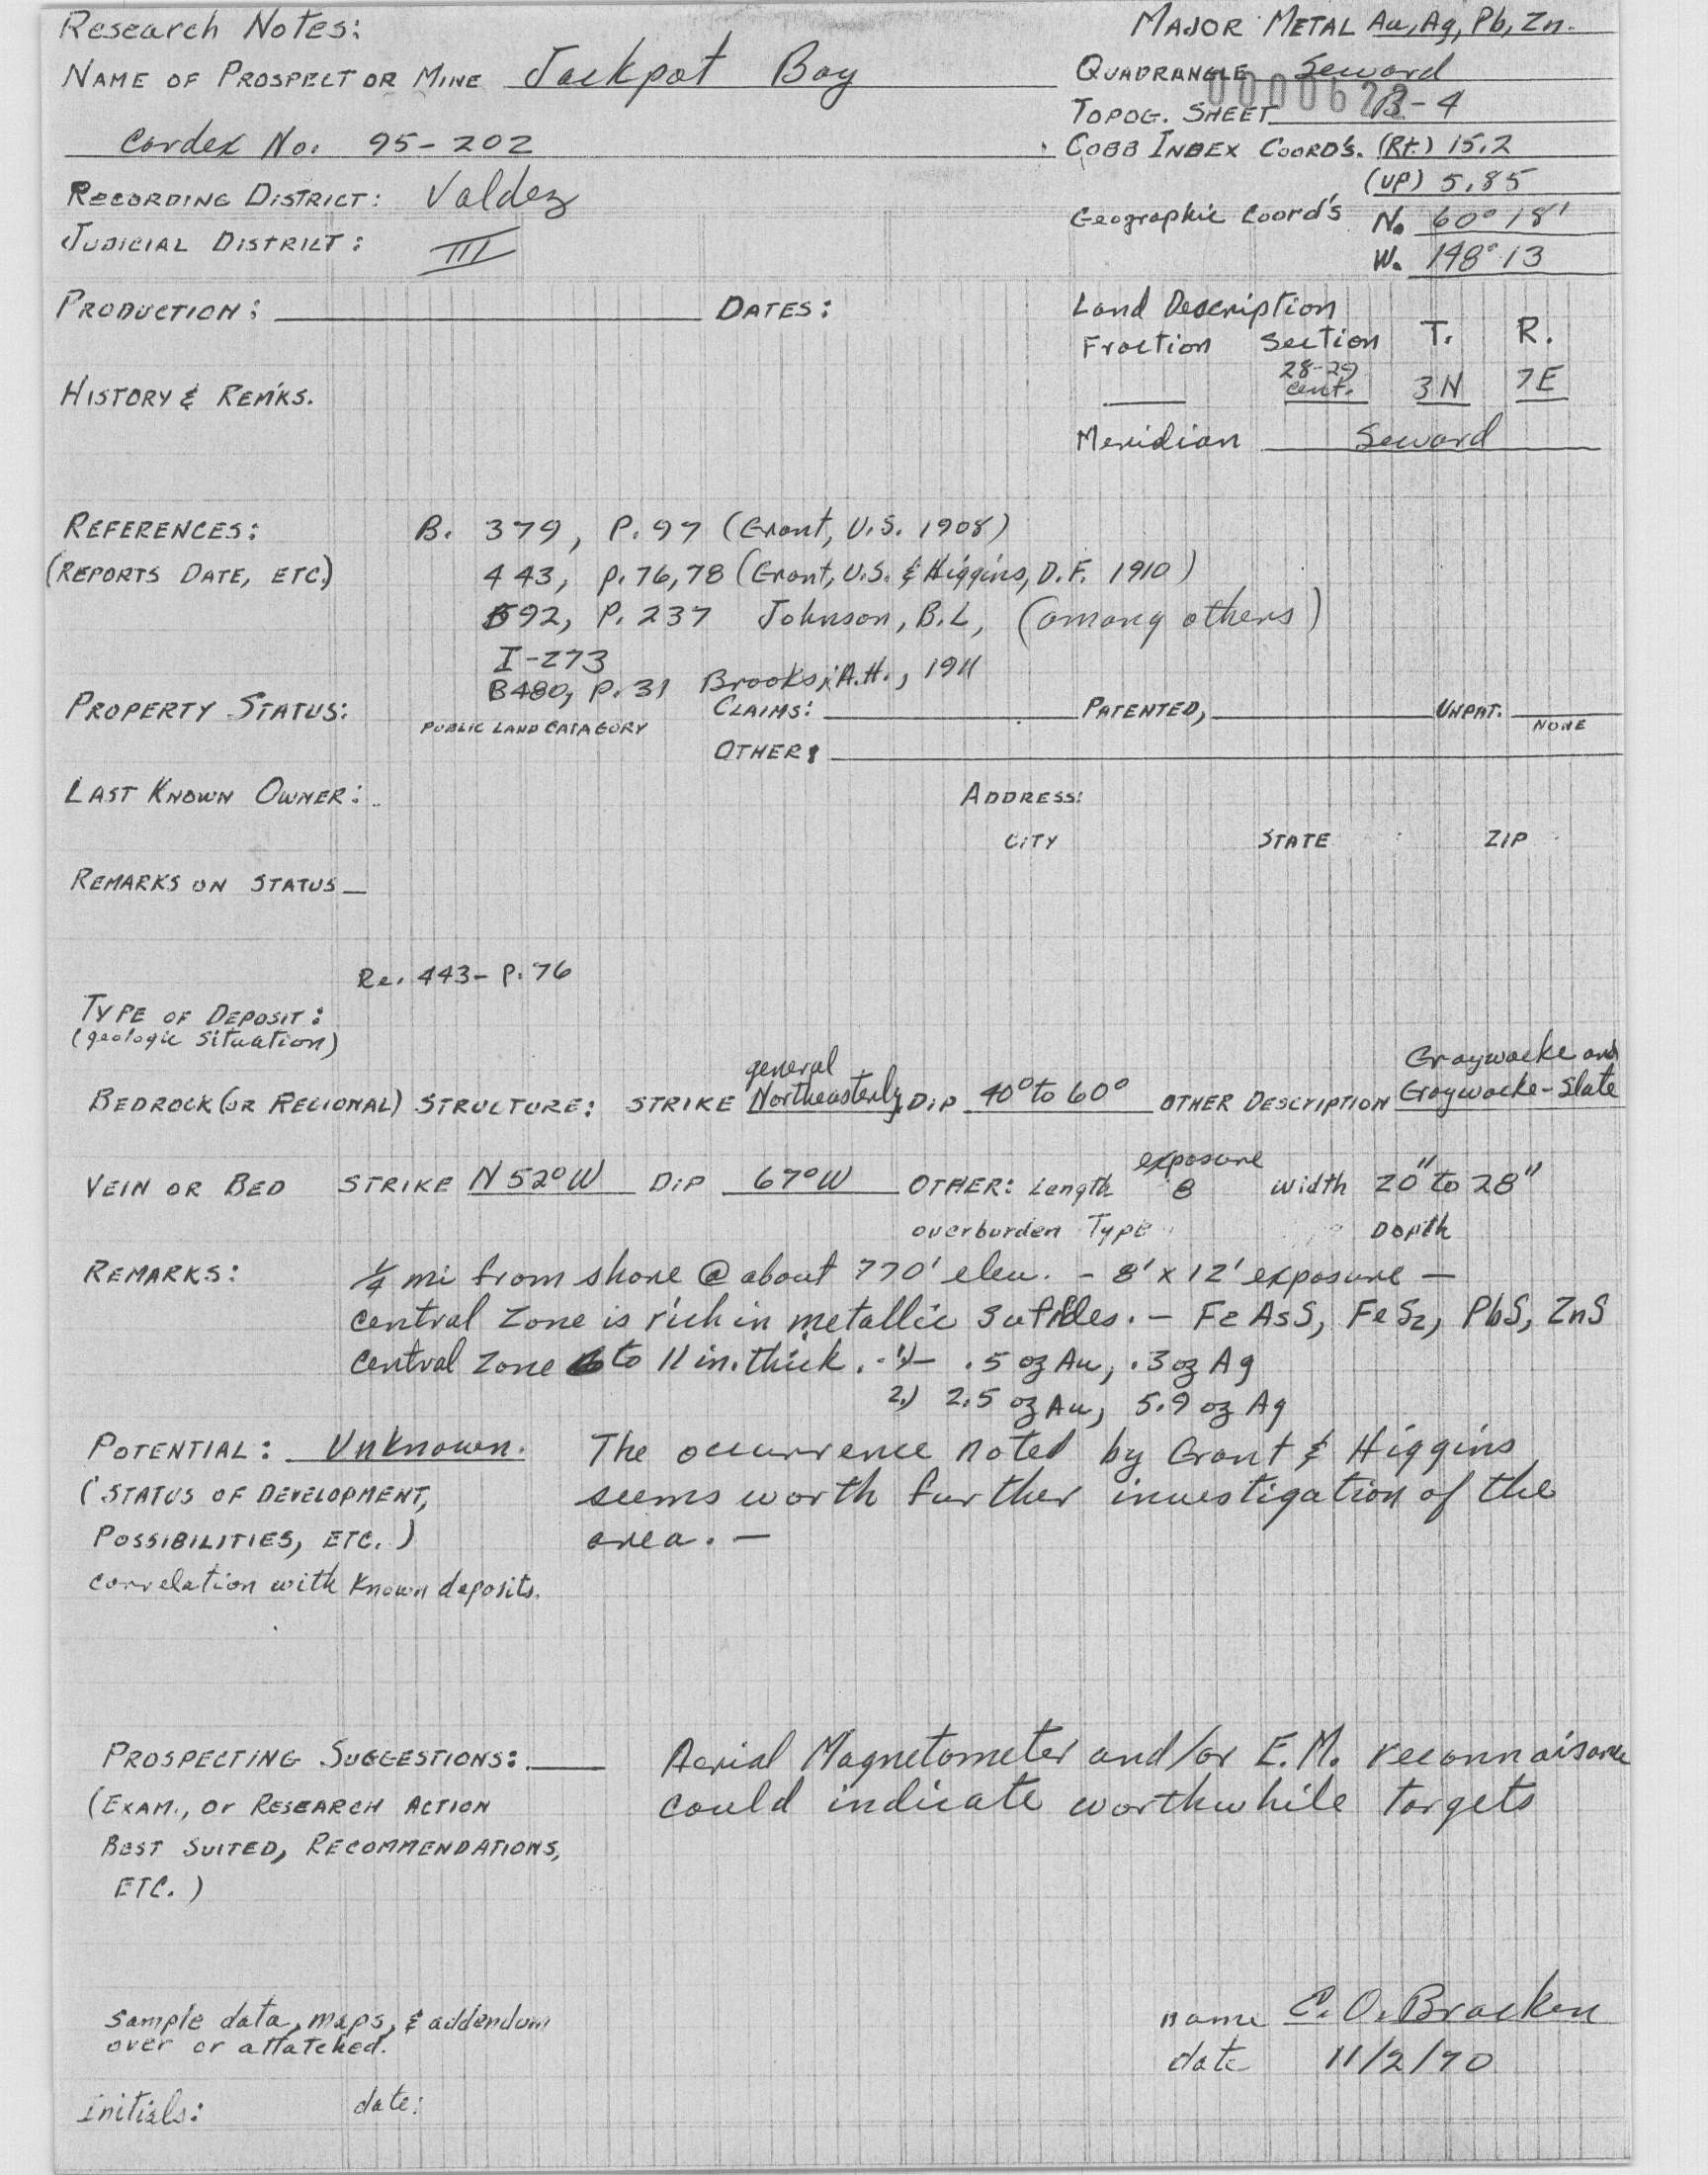 Research Notes:
MAJOR METAL Au, Ag, Pb, Zn.
NAME OF PROSPECT OR MINE Jackpot Bay
QUADRANGLE Seward
TOPOG. SHEET B-4
Cardex No. 95-202
COBB INDEX COORD'S. (Rt.) 15.2
(UP) 5.85
RECORDING DISTRICT: Valdez
Geographic Coord's N. 60° 18'
JUDICIAL DISTRICT: III
W. 148° 13
PRODUCTION: DATES:
Land Description
Fraction Section T. R.
28-29
cent. 3N 7E
HISTORY & REM'KS.
Meridian Seward
REFERENCES: B. 379, P. 97 (Grant, U.S. 1908)
(REPORTS DATE, ETC.) 443, p. 76, 78 (Grant, U.S. & Higgins, D.F. 1910)
592, P. 237 Johnson, B.L, (among others)
I-273
B480, P. 31 Brooks, A.H., 1911
PROPERTY STATUS: CLAIMS: PATENTED, UNPAT.
PUBLIC LAND CATAGORY NONE
OTHER:
LAST KNOWN OWNER: ADDRESS:
CITY STATE ZIP
REMARKS ON STATUS
Re. 443- P. 76
TYPE OF DEPOSIT:
(geologic situation)
general Graywacke and
BEDROCK (OR REGIONAL) STRUCTURE: STRIKE Northeasterly DIP 40° to 60° OTHER DESCRIPTION Graywacke-Slate
exposure
VEIN OR BED STRIKE N 52° W DIP 67° W OTHER: Length 8 width 20" to 28"
overburden Type Depth
REMARKS: ¼ mi from shore @ about 770' elev. - 8' x 12' exposure -
central zone is rich in metallic sulfides. - FeAsS, FeS2, PbS, ZnS
central zone 6 to 11 in. thick. - 1) - .5 oz Au, .3 oz Ag
2.) 2.5 oz Au, 5.9 oz Ag
POTENTIAL: Unknown. The occurrence noted by Grant & Higgins
(STATUS OF DEVELOPMENT, seems worth further investigation of the
POSSIBILITIES, ETC.) area. -
correlation with known deposits.
PROSPECTING SUGGESTIONS: Aerial Magnetometer and/or E.M. reconnaisance
(EXAM., or RESEARCH ACTION could indicate worthwhile targets
BEST SUITED, RECOMMENDATIONS,
ETC.)
sample data, maps, & addendum
over or attatched.
name C. O. Bracken
date 11/2/70
Initials: date: